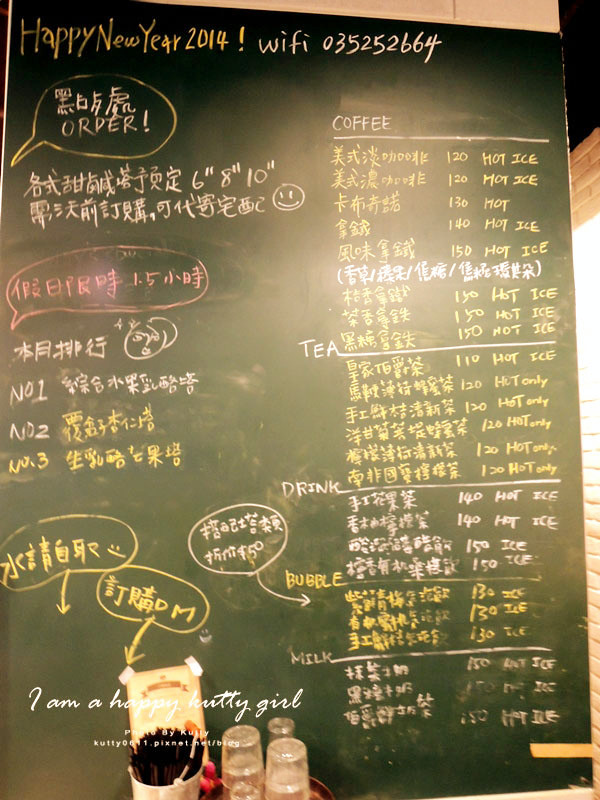 Happy New Year 2014! wifi 035252664
點點處
ORDER!
各式甜鹹塔預定 6" 8" 10"
需三天前訂購,可代寄宅配
假日限時 1.5小時
本月排行
NO1 綜合水果乳酪塔
NO2 覆盆子杏仁塔
NO.3 生乳酪芒果塔
水請自取
訂購DM
搭配塔類
折價50
COFFEE
美式淡咖啡 120 HOT ICE
美式濃咖啡 120 HOT ICE
卡布奇諾 130 HOT
拿鐵 140 HOT ICE
風味拿鐵 150 HOT ICE
(香草/榛果/焦糖/焦糖瑪其朵)
桔香拿鐵 150 HOT ICE
茶香拿鐵 150 HOT ICE
黑糖拿鐵 150 HOT ICE
TEA
皇家伯爵茶 110 HOT ICE
馬鞭薄荷蜂蜜茶 120 HOT only
手工鮮桔清新茶 120 HOT only
洋甘菊 蜂蜜茶 120 HOT only
檸檬薄荷清新茶 120 HOT only
南非國寶檸檬茶 120 HOT only
DRINK
手工花果茶 140 HOT ICE
香柚檸檬茶 140 HOT ICE
醋飲 150 ICE
飲 150 ICE
BUBBLE
氣泡飲 130 ICE
氣泡飲 130 ICE
手工鮮桔氣泡飲 130 ICE
MILK
抹茶牛奶 150 HOT ICE
黑糖牛奶 150 HOT ICE
伯爵鮮奶茶 150 HOT ICE
I am a happy kutty girl
Photo By Kutty
kutty0611.pixnet.net/blog